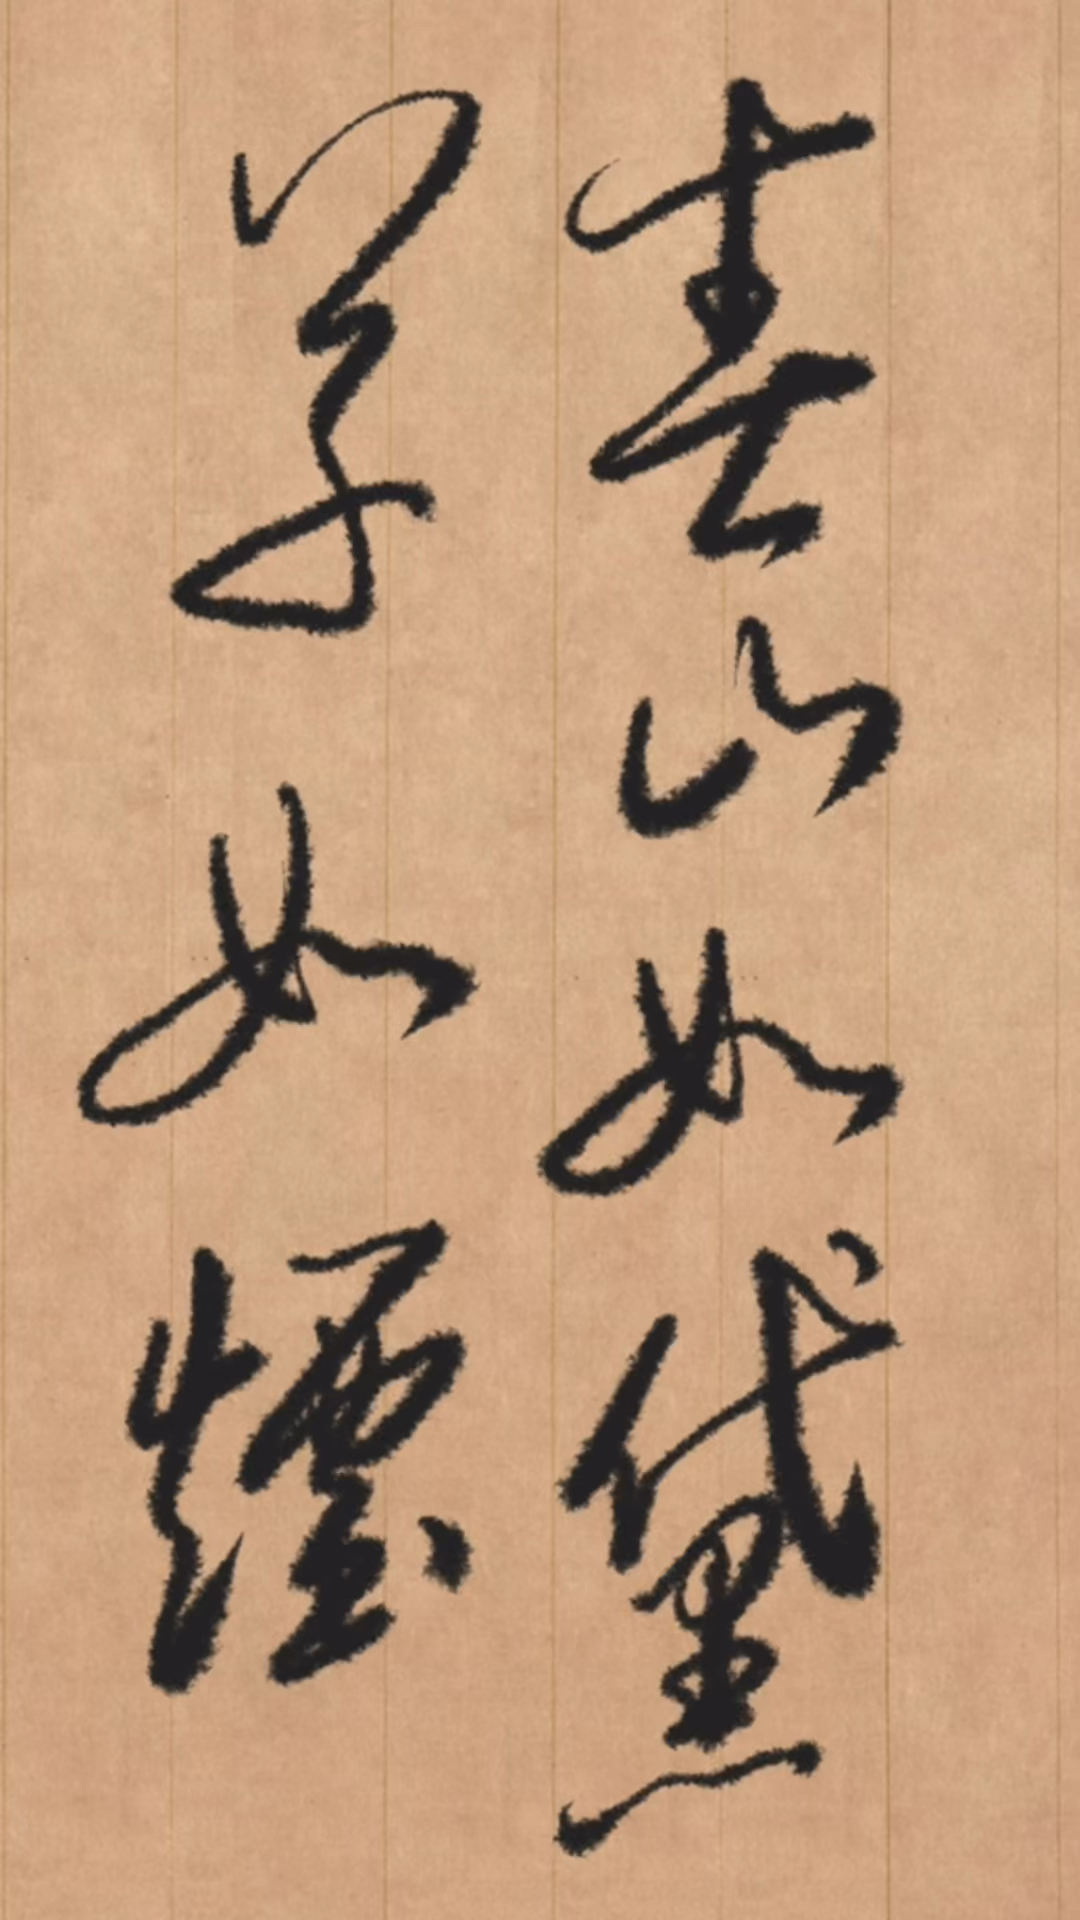 春山如黛
草如煙